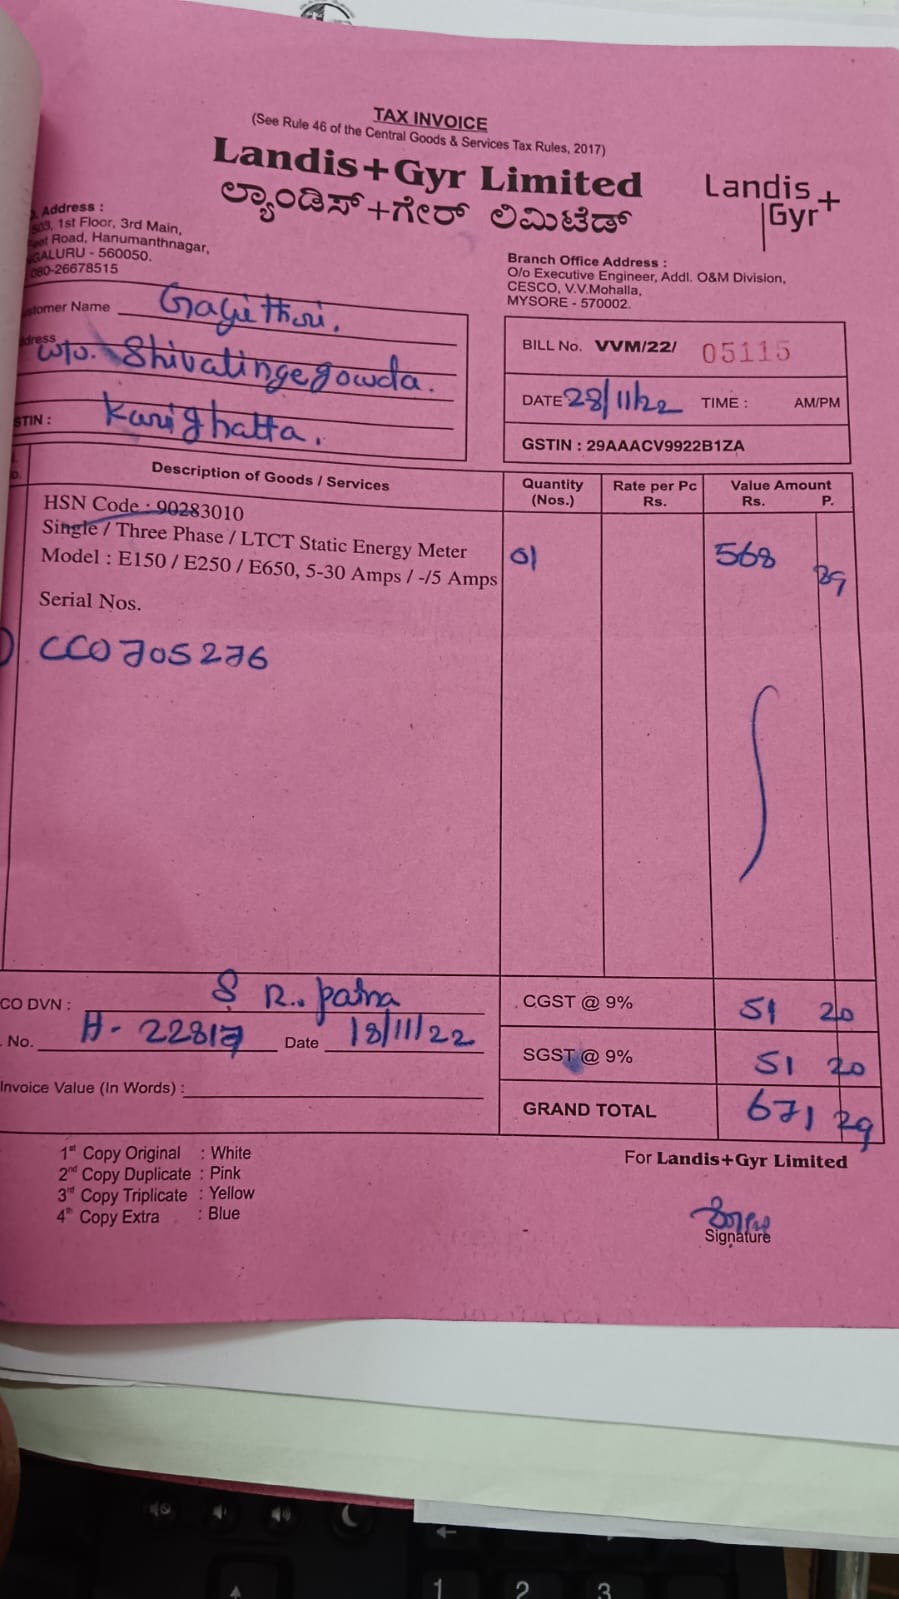 TAX INVOICE
(See Rule 46 of the Central Goods & Services Tax Rules, 2017)
Landis+Gyr Limited
ಲ್ಯಾಂಡಿಸ್+ಗೇರ್ ಲಿಮಿಟೆಡ್
Landis+
Gyr
Address :
1st Floor, 3rd Main,
Road, Hanumanthnagar,
GALURU - 560050.
080-26678515
Branch Office Address :
O/o Executive Engineer, Addl. O&M Division,
CESCO, V.V.Mohalla,
MYSORE - 570002.
stomer Name Gayithri.
dress w/o. Shivalingegowda.
STIN : Karighatta.
BILL No. VVM/22/ 05115
DATE 28/11/22 TIME : AM/PM
GSTIN : 29AAACV9922B1ZA
Description of Goods / Services Quantity (Nos.) Rate per Pc Rs. Value Amount Rs. P.
HSN Code : 90283010
Single / Three Phase / LTCT Static Energy Meter
Model : E150 / E250 / E650, 5-30 Amps / -/5 Amps 01 568 89
Serial Nos.
CC0705276
CO DVN : S R. patna
. No. H-22817 Date 18/11/22
Invoice Value (In Words) :
CGST @ 9% 51 20
SGST @ 9% 51 20
GRAND TOTAL 671 29
1st Copy Original : White
2nd Copy Duplicate : Pink
3rd Copy Triplicate : Yellow
4th Copy Extra : Blue
For Landis+Gyr Limited
Signature
1 2 3